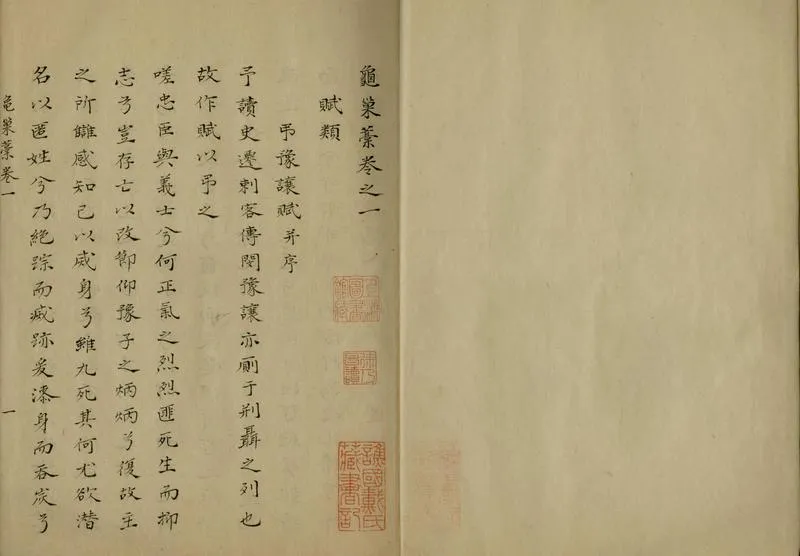 龜巢藳卷之一
賦類
弔豫讓賦并序
予讀史遷刺客傳閔豫讓亦廁于荆聶之列也
故作賦以弔之
嗟忠臣與義士兮何正氣之烈烈匪死生而抑
志兮豈存亡以改節仰豫子之炳炳兮復故主
之所讎感知己以烕身兮雖九死其何尤欲潛
名以匿姓兮乃絕踪而烕跡爰漆身而吞炭兮
龜巢藳卷一
一
譙國戴氏
藏書記